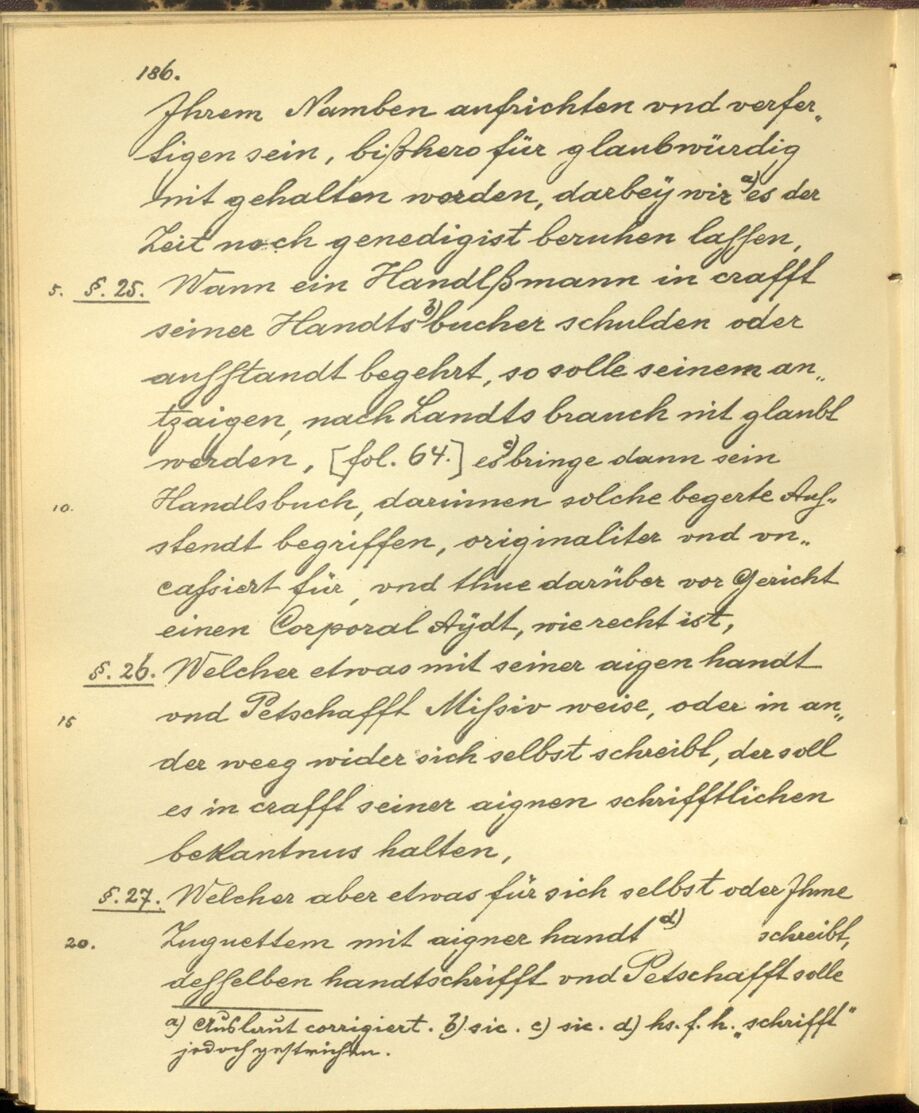 186.
Ihrem Namben aufrichten vnd verfer„
tigen sein, bißhero für glaubwürdig
nit gehalten worden, darbeÿ wir a) es der
Zeit noch genedigist beruhen lassen,
5. §. 25. Wann ein Handlßmann in crafft
seiner Handts b) bucher schulden oder
ausstandt begehrt, so solle seinem an„
tzaigen, nach Landts brauch nit glaubt
werden, [fol. 64.] es c) bringe dann sein
10. Handlsbuch, darinnen solche begerte Aus„
stendt begriffen, originaliter vnd vn„
cassiert für, vnd thue darüber vor Gericht
einen Corporal Aÿdt, wie recht ist,
§. 26. Welcher etwas mit seiner aigen handt
15 vnd Petschafft Missiv weise, oder in an„
der weeg wider sich selbst schreibt, der soll
es in crafft seiner aignen schrifftlichen
bekantnus halten,
§. 27. Welcher aber etwas für sich selbst oder Ihme
20. Zuguettem mit aigner handt d) schreibt,
desselben handtschrifft vnd Petschafft solle
a) Auslaut corrigiert. b) sic. c) sic. d) hs. f. h. „schrifft"
jedoch gestrichen.